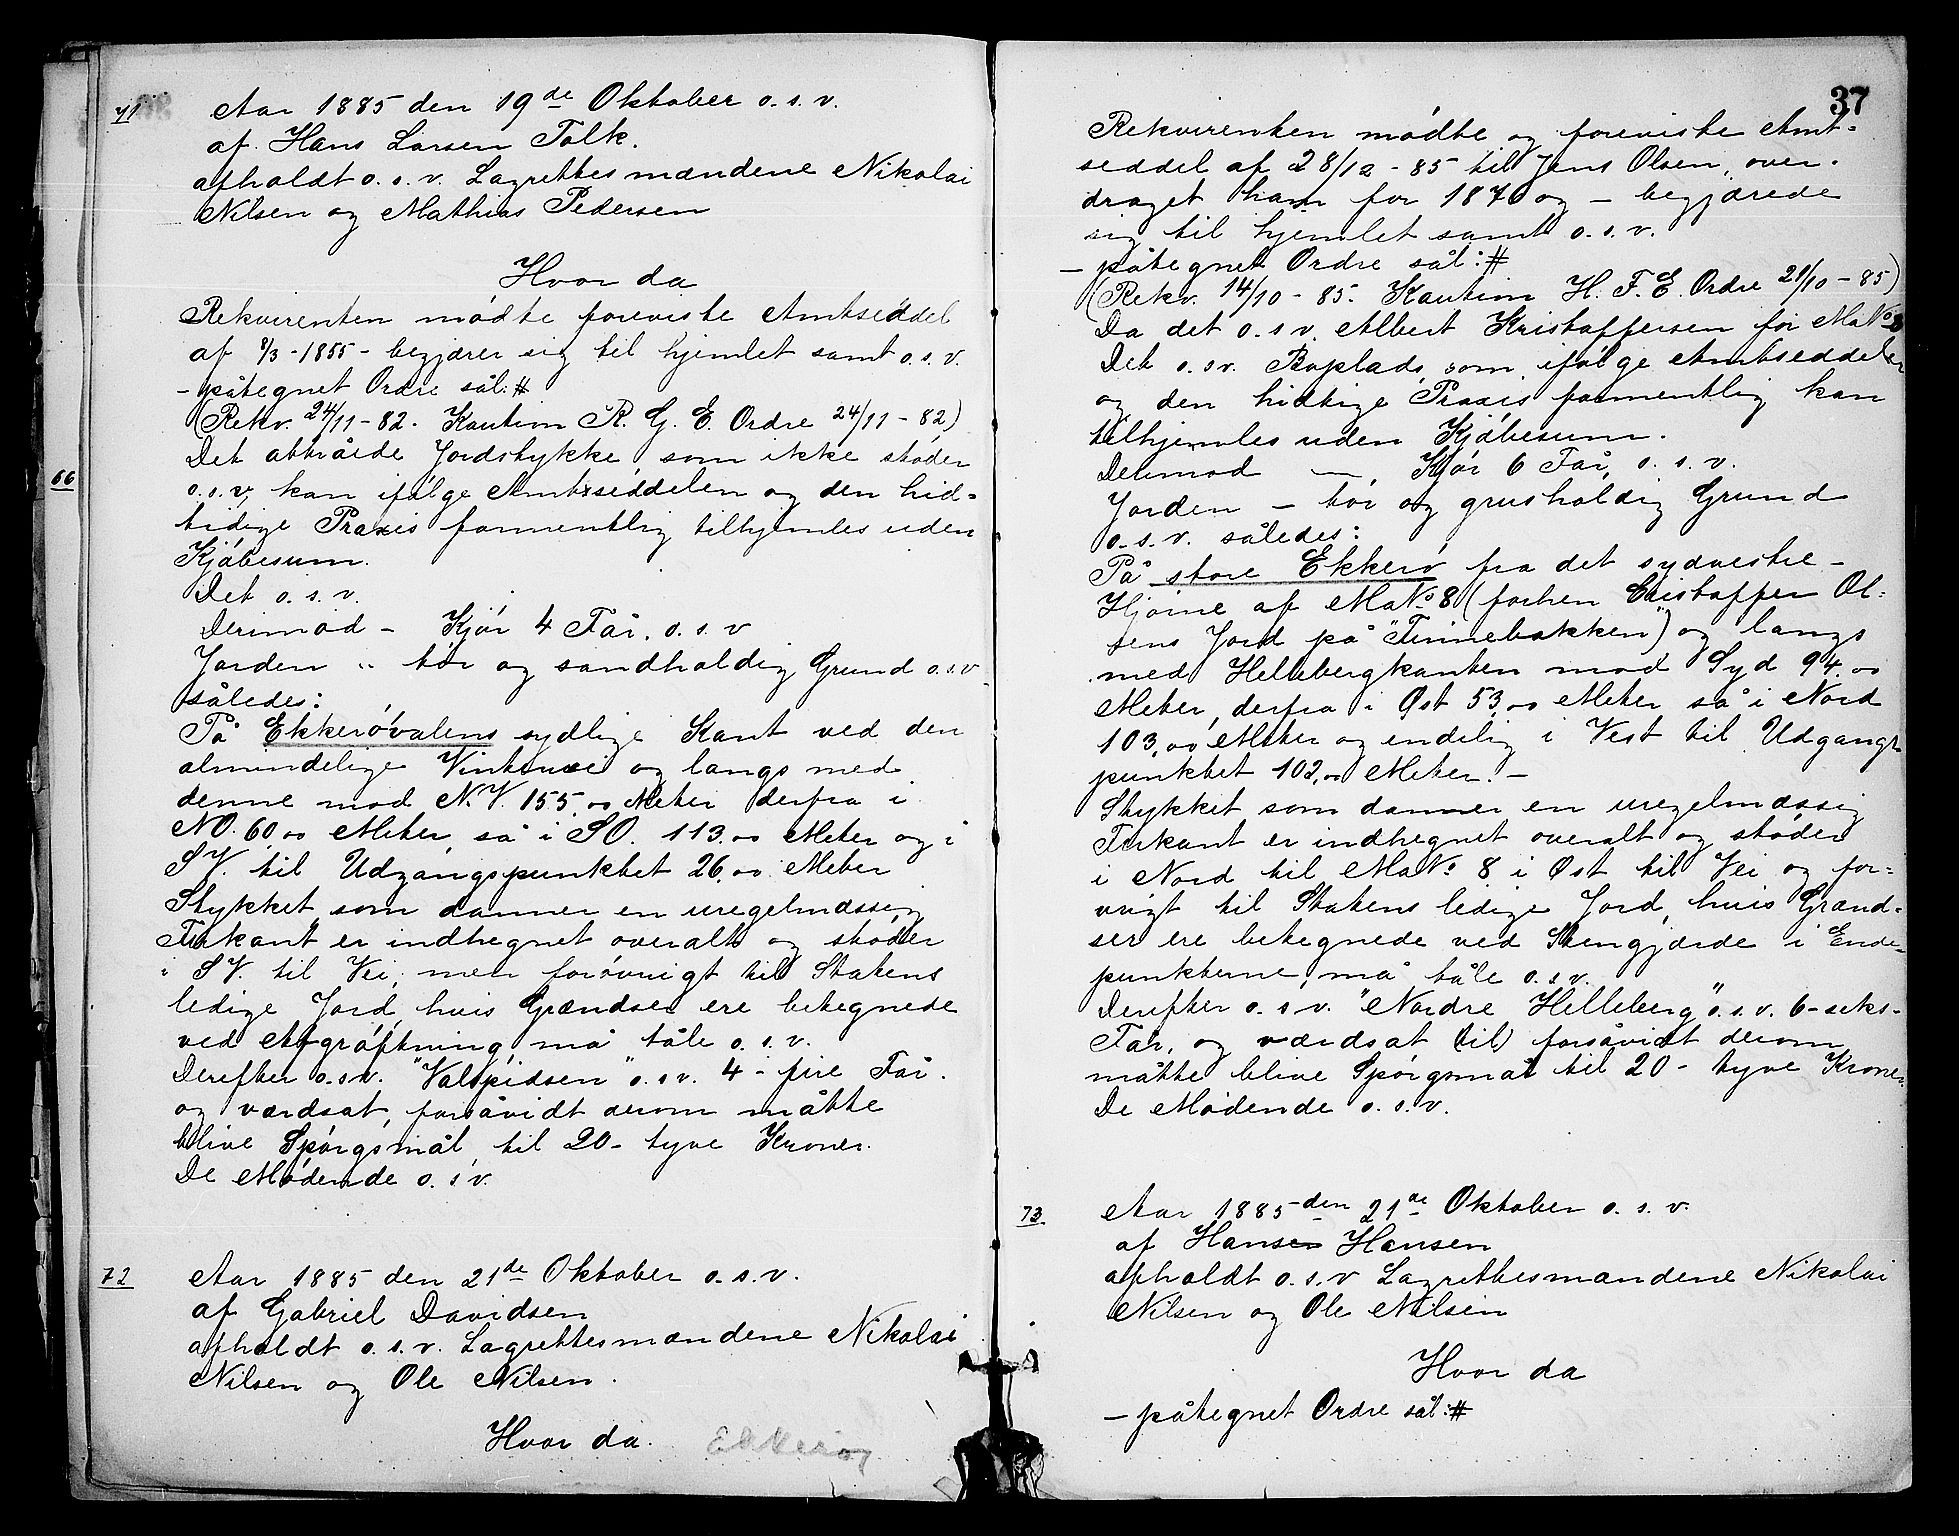 71
Aar 1885 den 19de Oktober o. s. v.
af Hans Larsen Tolk.
afholdt o. s. v. Lagrettesmændene Nikolai
Nilsen og Mathias Pedersen
Hvor da
Rekvirenten mødte foreviste Amtseddel
af 8/3-1855 - begjærer sig til hjemlet samt o. s. v.
- påtegnet Ordre sål: #
(Rekv. 24/11-82. Kautim R. G. E. Ordre 24/11-82)
Det attråede Jordstykke, som ikke støder
66
o. s. v, kan ifølge Amtsseddelen og den hid-
tidige Praxis formentlig tilhjemles uden
Kjøbesum.
Det o. s. v.
Derimod - Kjør 4 Får. o. s. v
Jorden " tør og sandholdig Grund o. s. v
således:
På Ekkerøvalens sydlige Kant ved den
almindelige Vintervei og langs med
denne mod N.V. 155,00 Meter derfra i
NO. 60,00 Meter, så i SO. 113,00 Meter og i
SV. til Udgangspunktet 26,00 Meter
Stykket som danner en uregelmæssig
Firkant er indhegnet overalt og støder
i SV. til Vei, men forøvrigt til Statens
ledige Jord, hvis Grændser ere betegnede
ved Afgrøftning, må tåle o. s. v.
Derefter o. s. v. "Valspidsen" o. s v. 4 - fire Får.
og værdsat, forsåvidt derom måtte
blive Spørgsmål til 20 - tyve Kroner.
De Mødende o. s v.
72
Aar 1885 den 21de Oktober o. s. v.
af Gabriel Davidsen
afholdt o. s. v. Lagrettesmændene Nikolai
Nilsen og Ole Nilsen.
Hvor da.
Ekkerøy
37
Rekvirenten mødte og foreviste Amt-
seddel af 28/12-85 til Jens Olsen, over-
draget ham for 1870 og - begjærede
sig til hjemlet samt o. s. v.
- påtegnet Ordre sål: #
(Rekv. 14/10-85. Kautim H. F. E. Ordre 21/10-85)
Da det o. s v. Albert Kristoffersen for MaNo 8
Det o. s v. Boplads, som ifølge Amtseddelen
og den hidtige Praxis formentlig kan
tilhjemles uden Kjøbesum.
Derimod — Kjør 6 Får, o. s. v.
Jorden - tør og grusholdig Grund
o. s. v. således:
På store Ekkerø fra det sydvestre -
Hjørne af MaNo 8 (forhen Cristoffer Ol-
sens Jord på "Finnebakken") og langs
med Hellebergkanten mod Syd 94,00
Meter, derfra i Øst 53,00 Meter så i Nord
103,00 Meter og endelig i Vest til Udgangs
punktet 102,00 Meter. -
Stykket som danner en uregelmæssig
Firkant er indhegnet overalt og støder
i Nord til MaNo 8 i Øst til Vei og for-
vrigt til Statens ledige Jord, hvis Grænd-
ser ere betegnede ved Stengjærde i Ende-
punkterne, må tåle o. s. v.
Derefter o. s v. "Nordre Helleberg" o. s. v. 6-seks-
Får, og værdsat til forsåvidt derom
måtte blive Spørgsmål til 20 - tyve Kroner.
De Mødende o. s. v.
73.
Aar 1885 den 21de Oktober o. s. v.
af Hansen Hansen
afholdt o. s. v Lagrettesmændene Nikolai
Nilsen og Ole Nilsen
Hvor da
- påtegnet Ordre sål: #